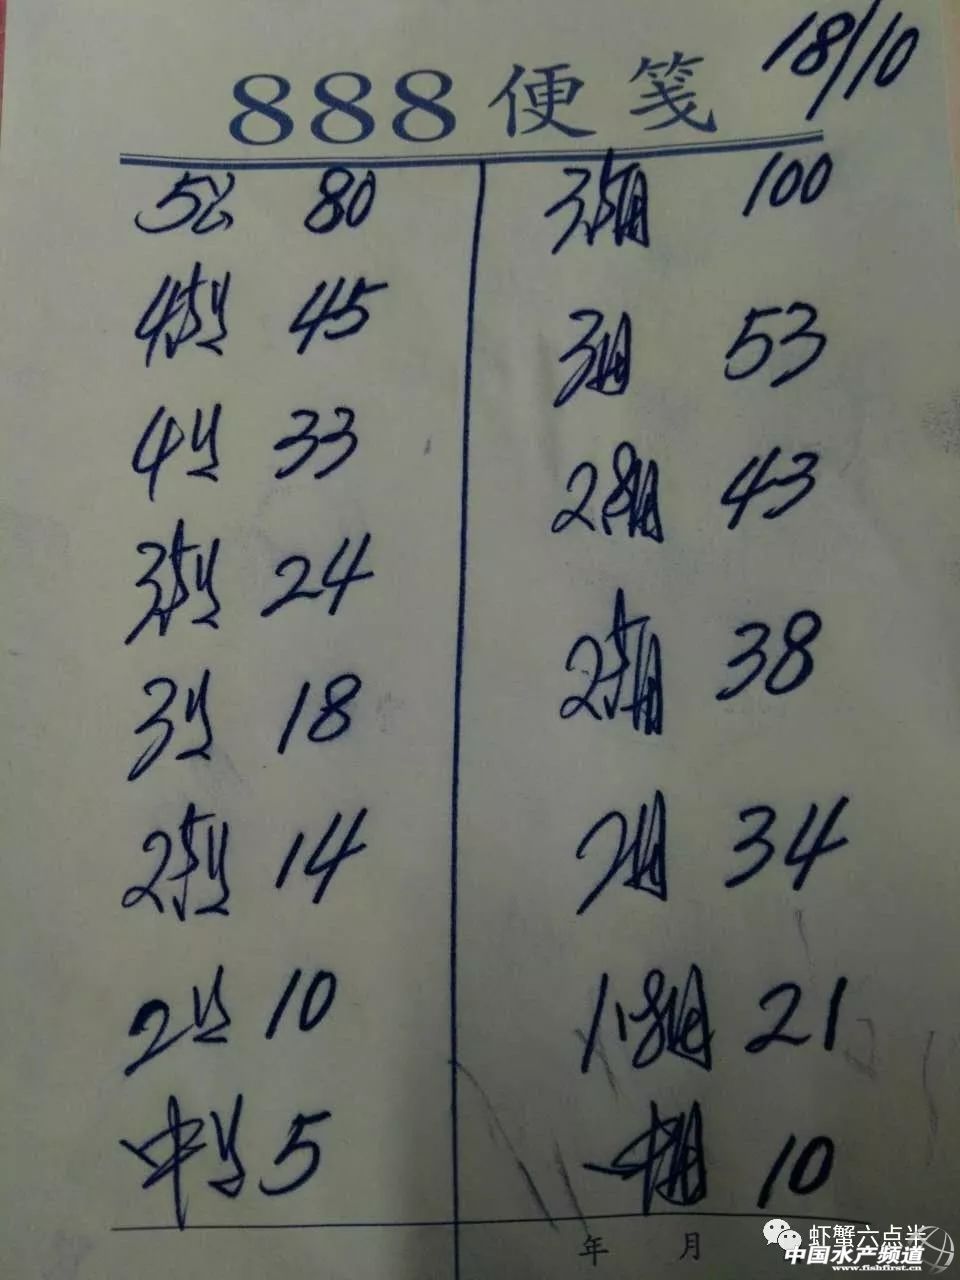 18/10
888便笺
5公 80
4.5公 45
4公 33
3.5公 24
3公 18
2.5公 14
2公 10
中公 5
3.5母 100
3母 53
2.8母 43
2.5母 38
2母 34
1.8母 21
中母 10
年 月
虾蟹六点半
中国水产频道
www.fishfirst.cn